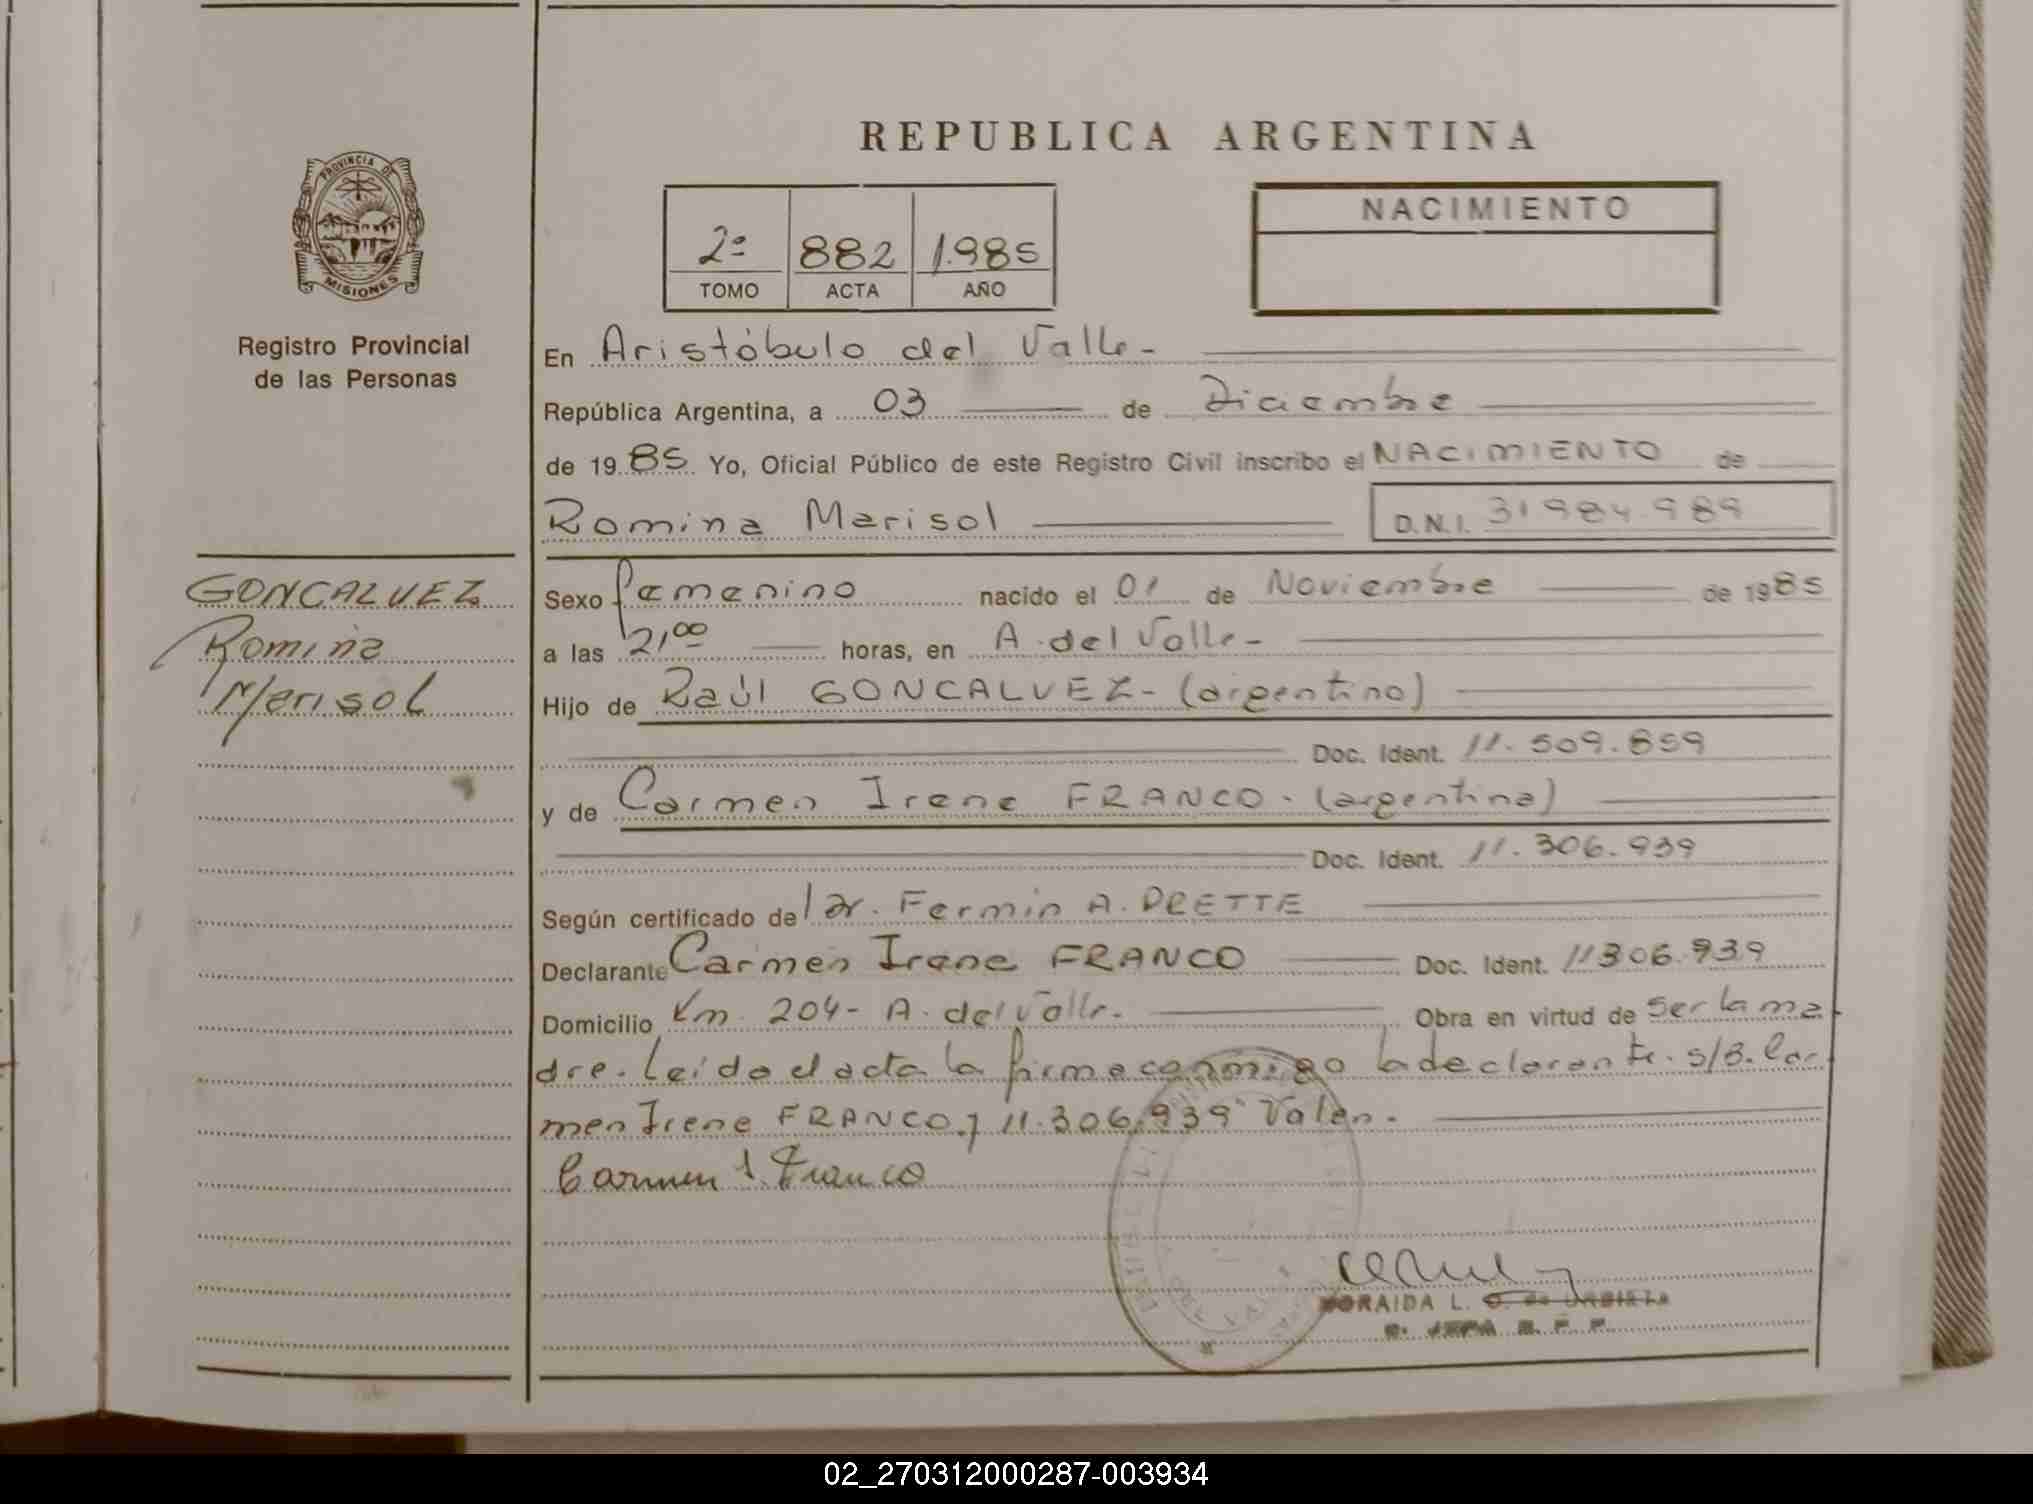 REPUBLICA ARGENTINA
PROVINCIA DE
MISIONES
Registro Provincial
de las Personas
2º 882 1.985
TOMO ACTA AÑO
NACIMIENTO
En Aristóbulo del Valle-
República Argentina, a 03 de Diciembre
de 1985 Yo, Oficial Público de este Registro Civil inscribo el NACIMIENTO de
Romina Marisol D.N.I. 31984.989
GONCALVEZ
Romina
Marisol
Sexo femenino nacido el 01 de Noviembre de 1985
a las 21,00 horas, en A. del Valle-
Hijo de Raúl GONCALVEZ- (argentino)
Doc. Ident. 11.509.859
y de Carmen Irene FRANCO. (argentina)
Doc. Ident. 11.306.939
Según certificado de Dr. Fermin A. PRETTE
Declarante Carmen Irene FRANCO Doc. Ident. 11306.939
Domicilio Km. 204- A. del Valle. Obra en virtud de ser la ma-
dre. Leído el acta la firma conmigo la declarante. S/B. Car-
men Irene FRANCO. y 11.306.939" Valen.
Carmen I. Franco
NORAIDA L.
02_270312000287-003934